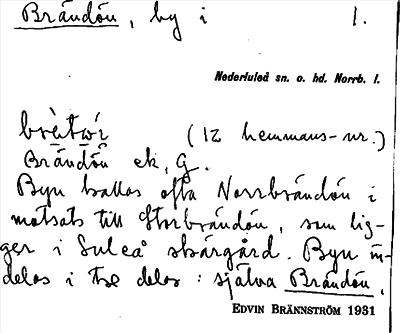 Brändön, by i 1.
Nederluleå sn. o. hd. Norrb. l.
(12 hemmans-nr.)
Brändön ek, G.
Byn kallas ofta Norrbrändön i
motsats till Storbrändön, som lig-
ger i Luleå skärgård. Byn in-
delas i tre delar: själva Brändön,
EDVIN BRÄNNSTRÖM 1931